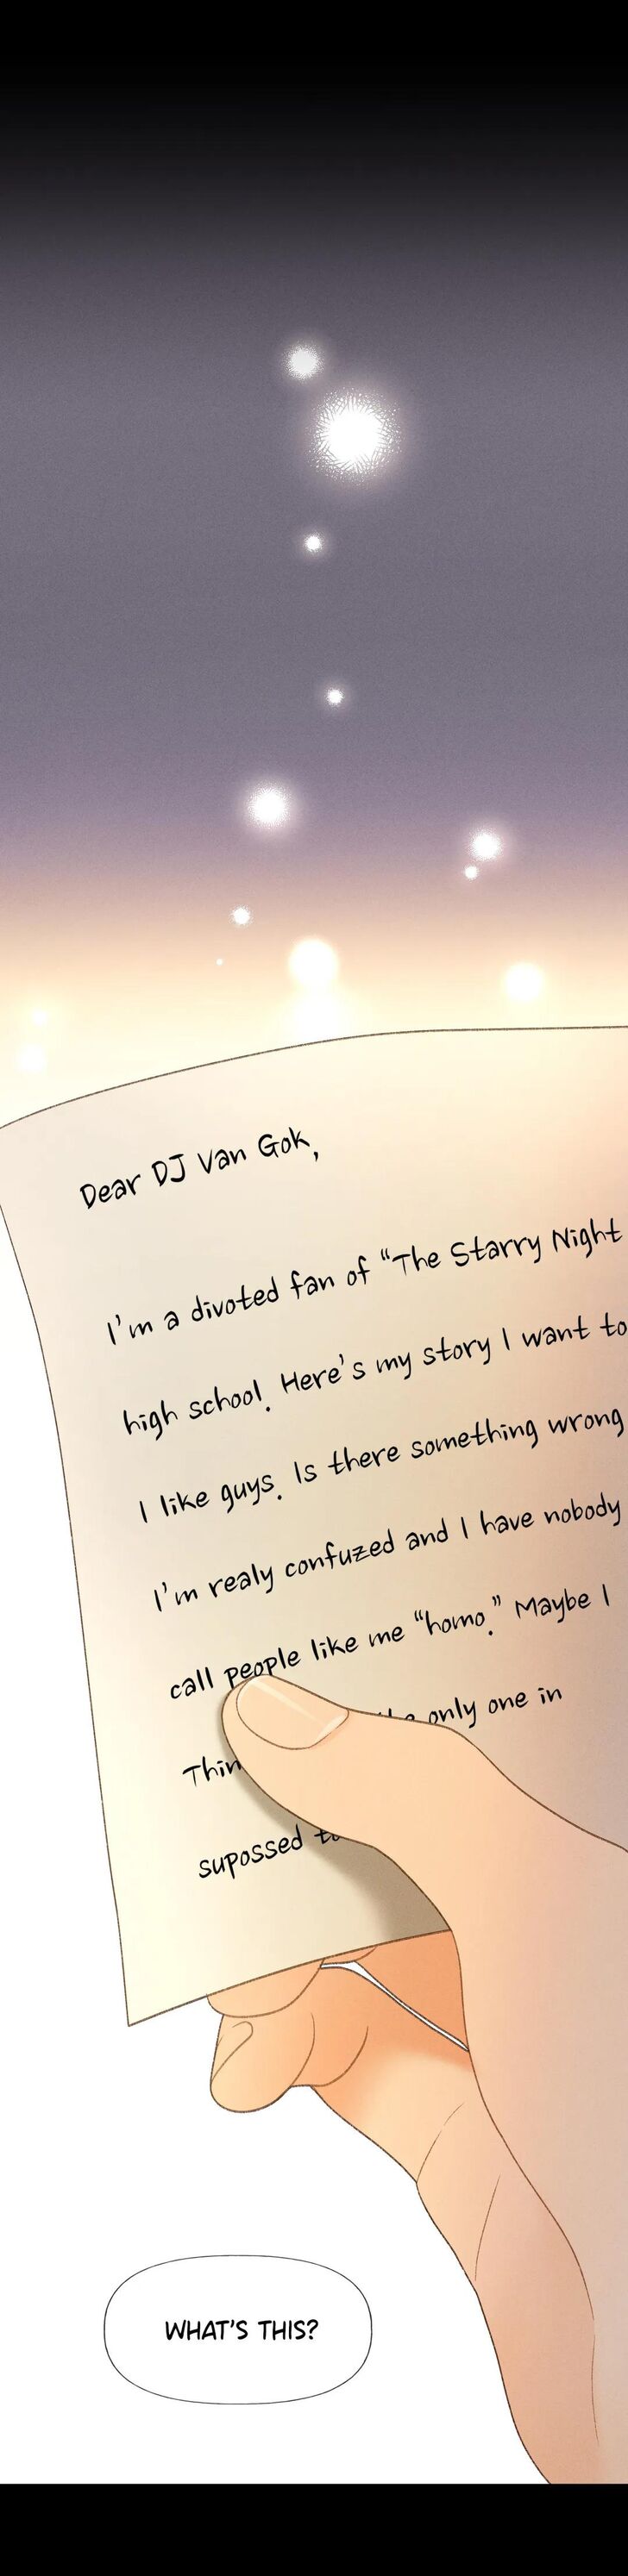 Dear DJ Van Gok,
I'm a divoted fan of "The Starry Night
high school. Here's my story I want to
I like guys. Is there something wrong
I'm realy confuzed and I have nobody
call people like me "homo." Maybe I
only one in
supossed
WHAT'S THIS?